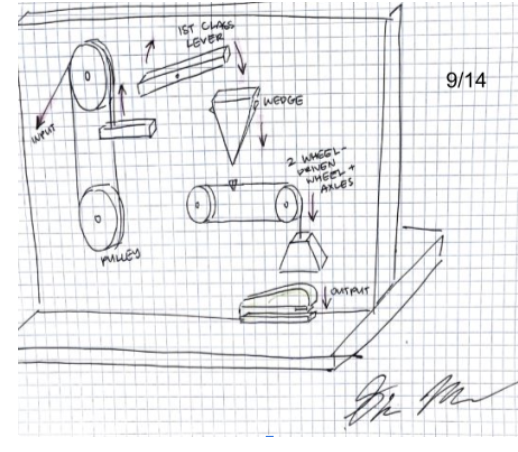 1ST CLASS
LEVER
9/14
WEDGE
INPUT
2 WHEEL-
DRIVEN
WHEEL +
AXLES
PULLEY
OUTPUT